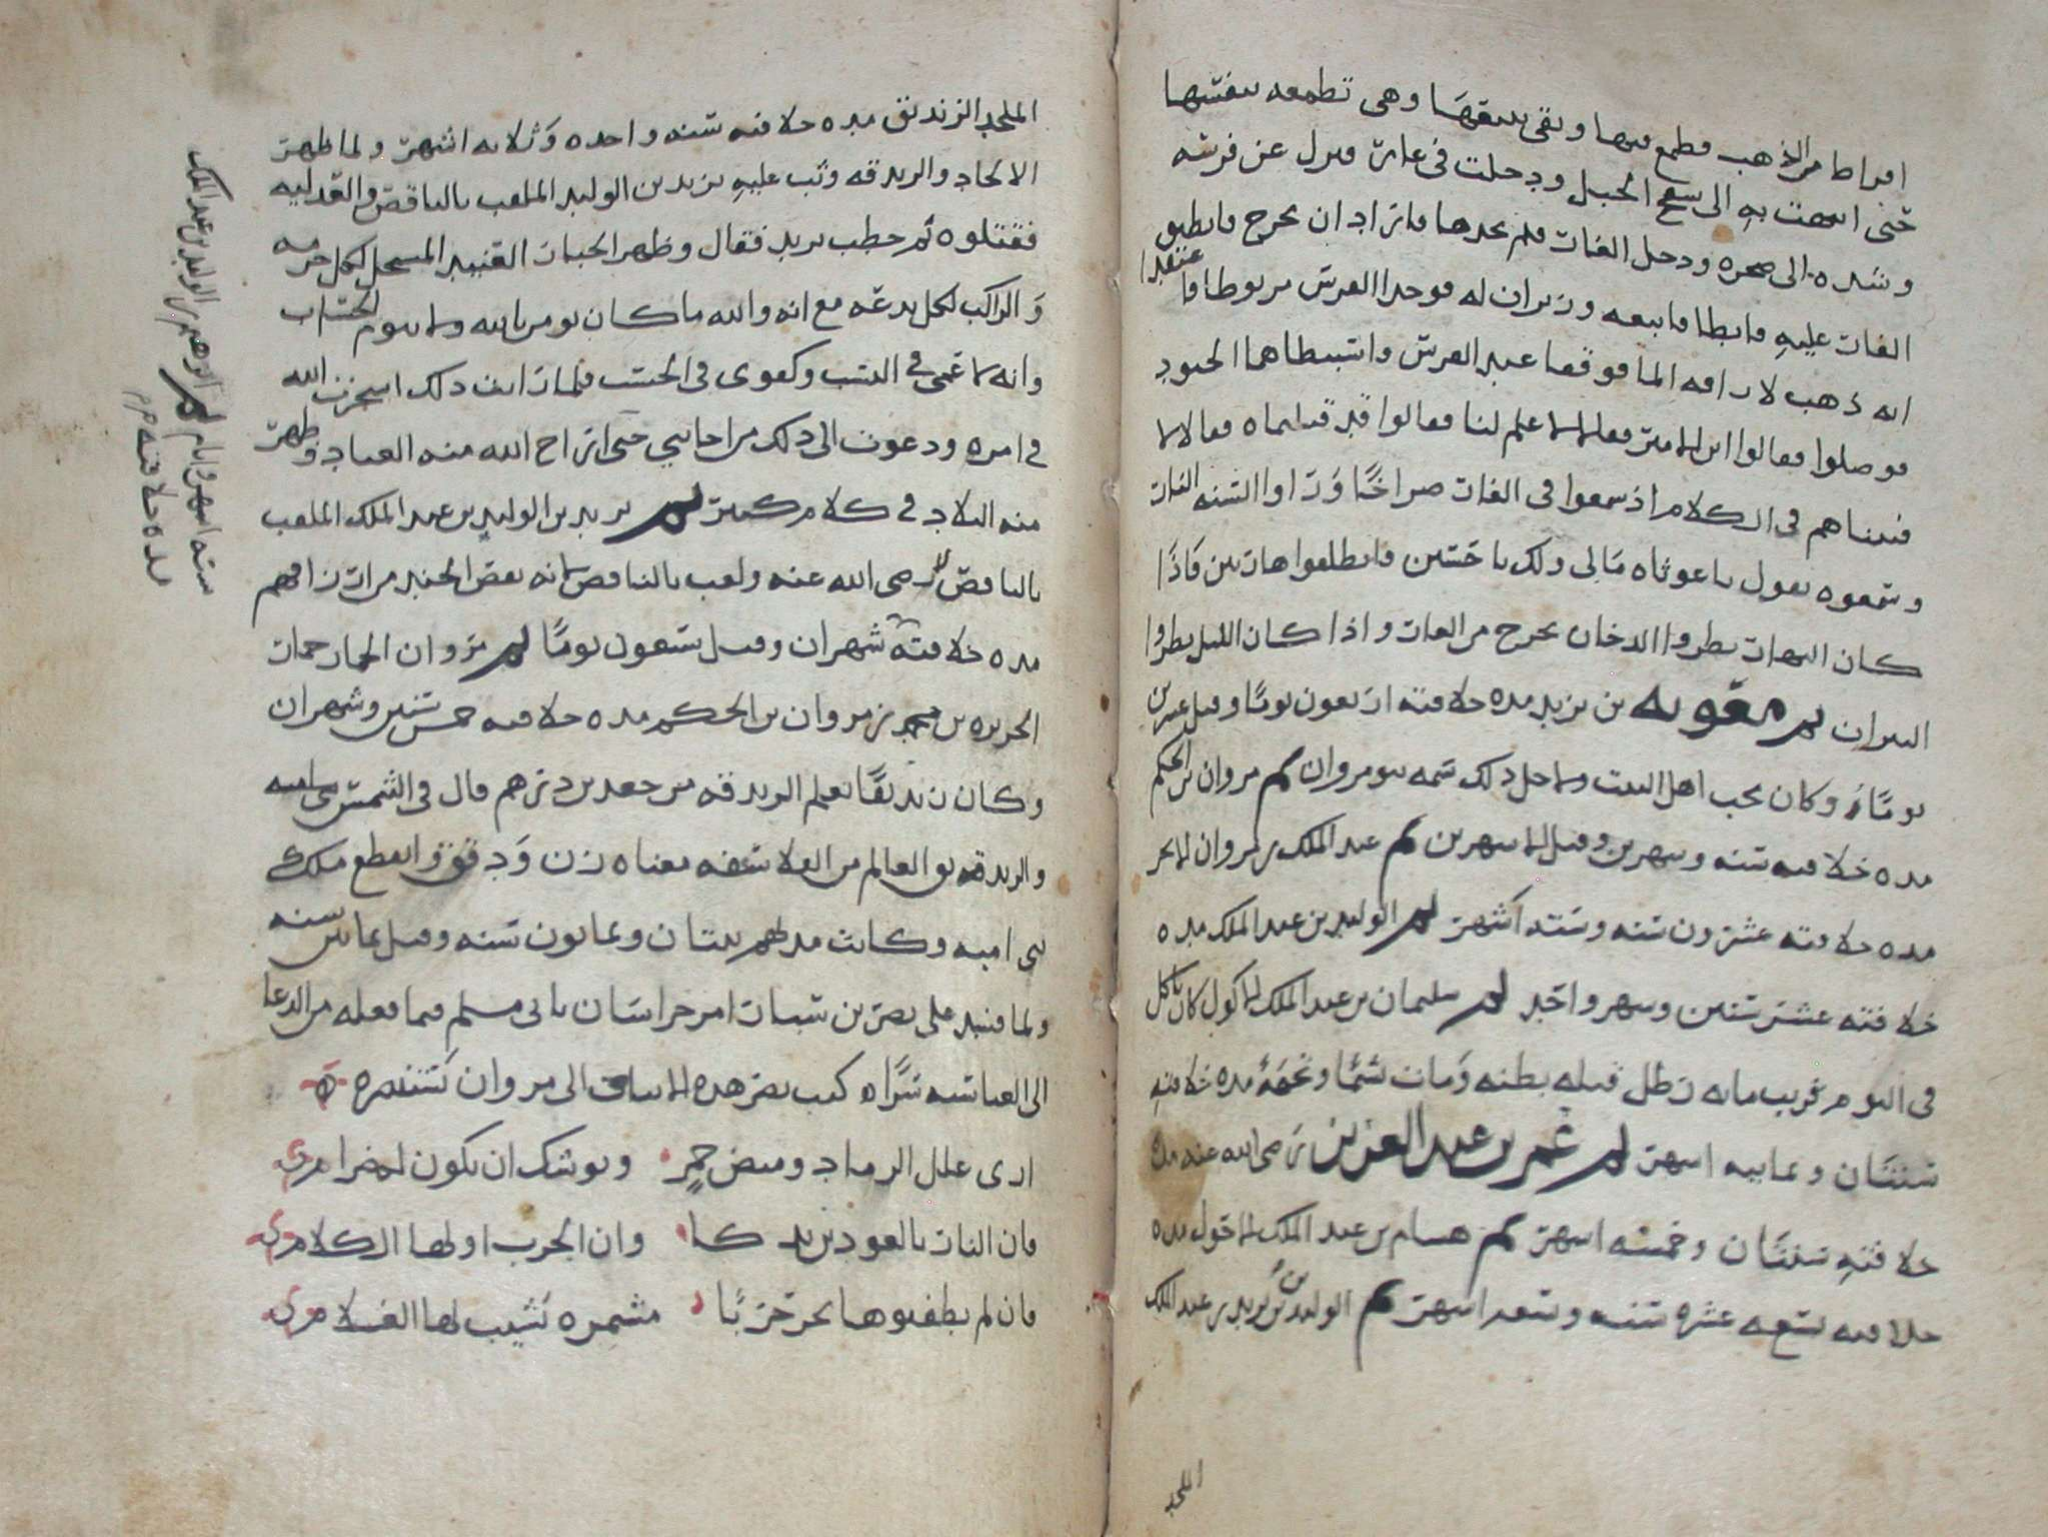 اقراطا من الذهب فطمع فيها وبقى يلحقها وهي تطمعه بنفسها
حتى انتهت به الى سفح الجبل ودخلت في غار فنزل عن فرسه
وشده الى صخره ودخل الغار فلم يجدها فاراد ان يخرج فانطبق
الغار عليه فابطا فاتبعه وزيران له فوجدا الفرس مربوطا فاعتقدا
انه ذهب لاراقه الما فوقفا عند الفرس واستبطاهما الجنود
فوصلوا فقالوا اين الامير فقالا لا علم لنا فقالوا قد قتلتماه فقالا لا
فبيناهم في الكلام اذ سمعوا في الغار صراخا وراوا السنه النار
وسمعوه يقول ياغوثاه مالي ولك ياحسين فانطلعوا هاربين فاذا
كان النهار نظروا الدخان يخرج من الغار واذا كان الليل نظروا
النيران ثم معويه بن يزيد مده خلافته اربعون يوما وقيل عشرين
يوما وكان يحب اهل البيت ولاجل ذلك سمه بنو مروان ثم مروان بن الحكم
مده خلافته سنه وشهرين وقيل الا شهرين ثم عبد الملك بن مروان الابخر
مده خلافته عشرون سنه وسته اشهر ثم الوليد بن عبد الملك مده
خلافته عشر سنين وشهر واحد ثم سليمان بن عبد الملك الاكول كان ياكل
في اليوم قريب مايه رطل قتله بطنه ومات مده خلافته
سنتان وثمانيه اشهر ثم عمر بن عبد العزيز رضي الله عنه مده
خلافته سنتان وخمسه اشهر ثم هشام بن عبد الملك الاحول مده
خلافته تسعه عشره سنه وسته اشهر ثم الوليد بن يزيد بن عبد الملك
الملحد
الملحد الزنديق مده خلافته سنه واحده وثلاثه اشهر ولما ظهر
الالحاد والزندقه وثب عليه يزيد بن الوليد الملقب بالناقص والقدريه
فقتلوه ثم خطب يزيد فقال وظهر الجبار العنيد المستحل لكل حرمه
والراكب لكل بدعه مع انه والله ما كان يومن بالله ولا بيوم الحساب
وانه لابن عمي في النسب وكفوي في الحسب فلما رايت ذلك استخرت الله
في امره ودعوت الى ذلك من اجابني حتى اراح الله منه العباد وطهر
منه البلاد في كلام كثير ثم يزيد بن الوليد بن عبد الملك الملقب
بالناقص رضي الله عنه ولقب بالناقص لانه نقص الجند من ارزاقهم
مده خلافته شهران وقيل تسعون يوما ثم مروان الحمار حمار
الجزيره بن محمد بن مروان بن الحكم مده خلافته خمس سنين وشهران
وكان زنديقا تعلم الزندقه من جعد بن درهم قال في الشمس
والزندقه العالم من الفلاسفه معناه زن ودقق وانقطع ملك
بني اميه وكانت مدتهم ثنتان وثمانون سنه وقيل ثمانين سنه
ولما فسد على نصر بن سيار امر خراسان بابي مسلم فيما فعله من الدعا
الى العباسيه سرا كتب نصر هذه الابيات الى مروان يستنصره
ارى خلل الرماد وميض جمر ويوشك ان يكون له ضرام
فان النار بالعودين كا وان الحرب اولها الكلام
فان لم يطفئوها تجر حربا مشمره يشيب لها الغلام
ثم ابراهيم بن الوليد بن عبد الملك
مده خلافته